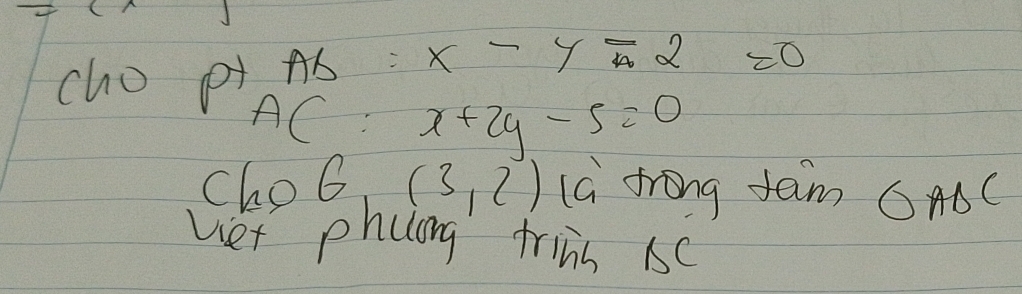 cho pt Ab : x - y - 2 = 0
AC : x + 2y - 5 = 0
Cho G (3, 2) là trọng tâm △ ABC
Viết phương trình BC